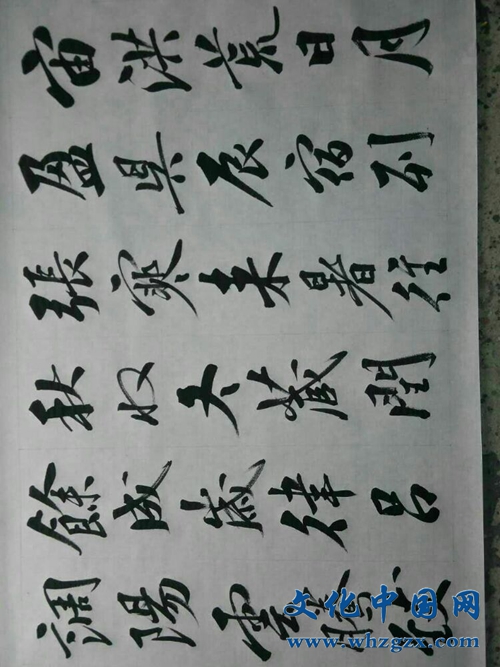 宙洪荒日月
盈昃辰宿列
張寒来暑往
秋收冬藏閏
餘成歲律呂
調陽雲騰致
文化中国网
www.whzgzx.com